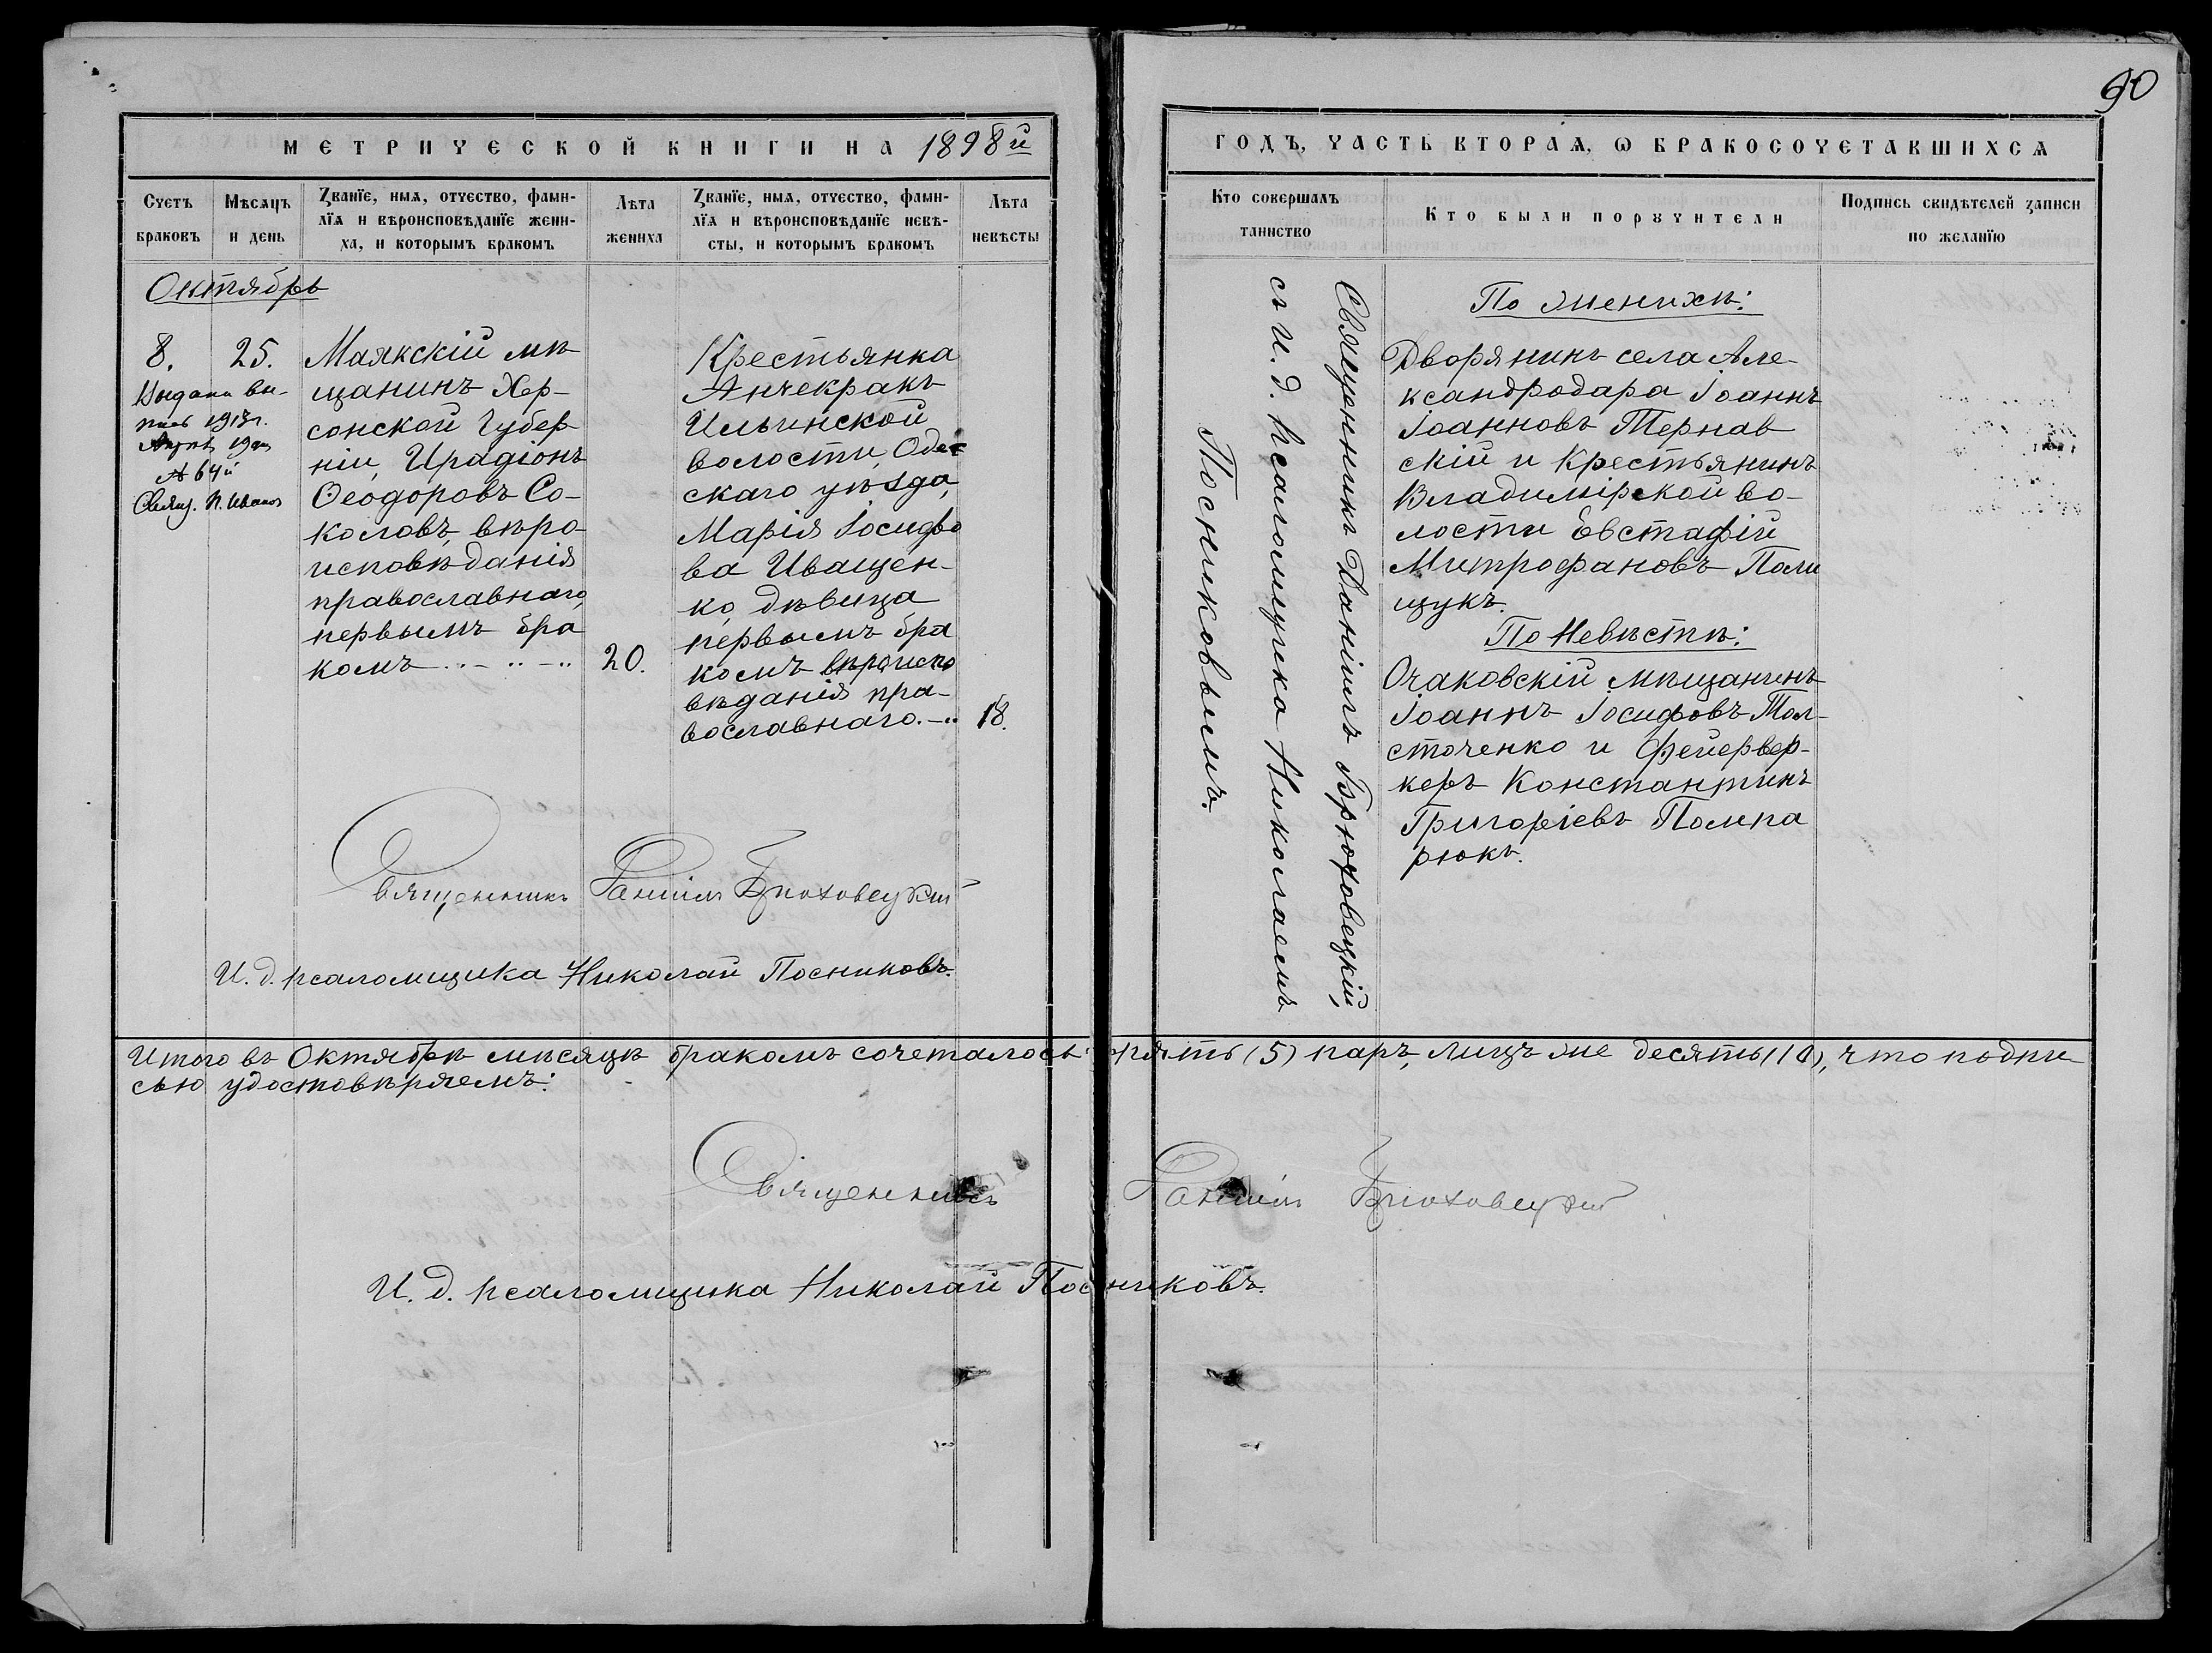 90
МЕТРИЧЕСКОЙ КНИГИ НА 1898й
ГОДЪ, ЧАСТЬ ВТОРАѦ, Ѡ БРАКОСОЧЕТАВШИХСѦ
Счетъ браковъ
Мѣсѧцъ и день
Званїе, имѧ, отчество, фами-
лїѧ и вѣроисповѣданїе жени-
ха, и которымъ бракомъ
Лѣта жениха
Званїе, имѧ, отчество, фами-
лїѧ и вѣроисповѣданїе невѣ-
сты, и которымъ бракомъ
Лѣта невѣсты
Кто совершалъ
таинство
Кто были порꙋчители
Подпись свидѣтелей записи
по желанїю
Октябрь
8.
25.
Выдана вы-
пись 1913г.
19
№ 64й
Свящ. П.
Маякскій мѣ-
щанинъ Хер-
сонской Губер-
ніи, Ирадіонъ
Ѳеодоровъ Со-
коловъ, вѣро-
исповѣданія
православнаго,
первымъ бра
комъ
20.
Крестьянка
Анчекракъ
Ильинской
волости, Одес
скаго уѣзда,
Марія Іосифо
ва Иващен-
ко, дѣвица
первымъ бра
комъ вѣроиспо
вѣданія пра-
вославнаго.
18.
Священникъ Даніилъ Брюховецкій,
съ И. д. псаломщика Николаемъ
Посниковымъ.
По женихѣ:
Дворянинъ села Але-
ксандродара Іоаннъ
Іоанновъ Тернав
скій и Крестьянинъ
Владимірской во-
лости Евстафій
Митрофановъ Поли
щукъ.
По Невѣстѣ:
Очаковскій мѣщанинъ
Іоаннъ Іосифовъ Тол-
сточенко и Фейервер-
керъ Константинъ
Григоріевъ Помпа
рюкъ.
Священникъ Даніилъ Брюховецкій
И. д. псаломщика Николай Посниковъ.
Итого въ Октябрѣ мѣсяцѣ бракомъ сочеталось пять (5) паръ, лицъ же десять (10), что подпи
сью удостовѣряемъ:
Священникъ Даніилъ Брюховецкій
И. д. псаломщика Николай Посниковъ.